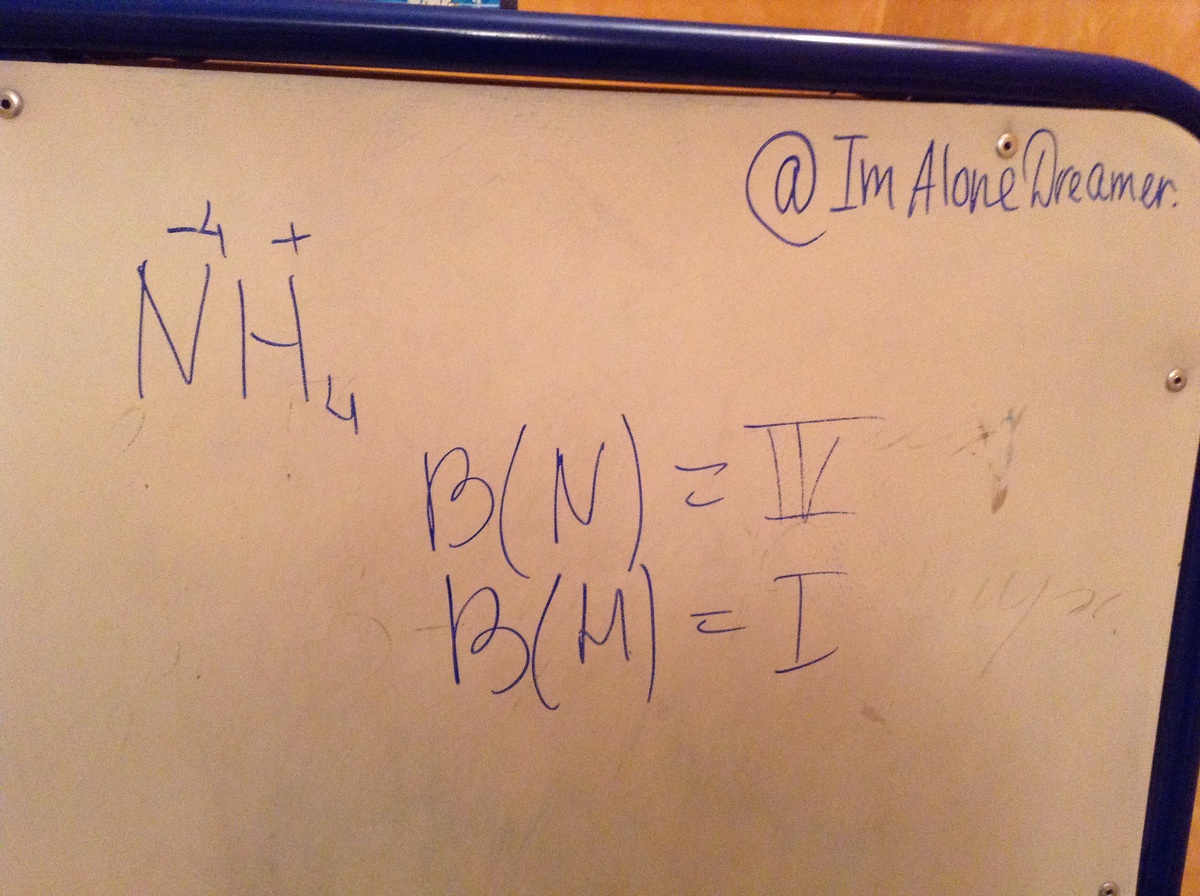 @ImAloneDreamer.
-4 +
NH4
B(N) = IV
B(H) = I